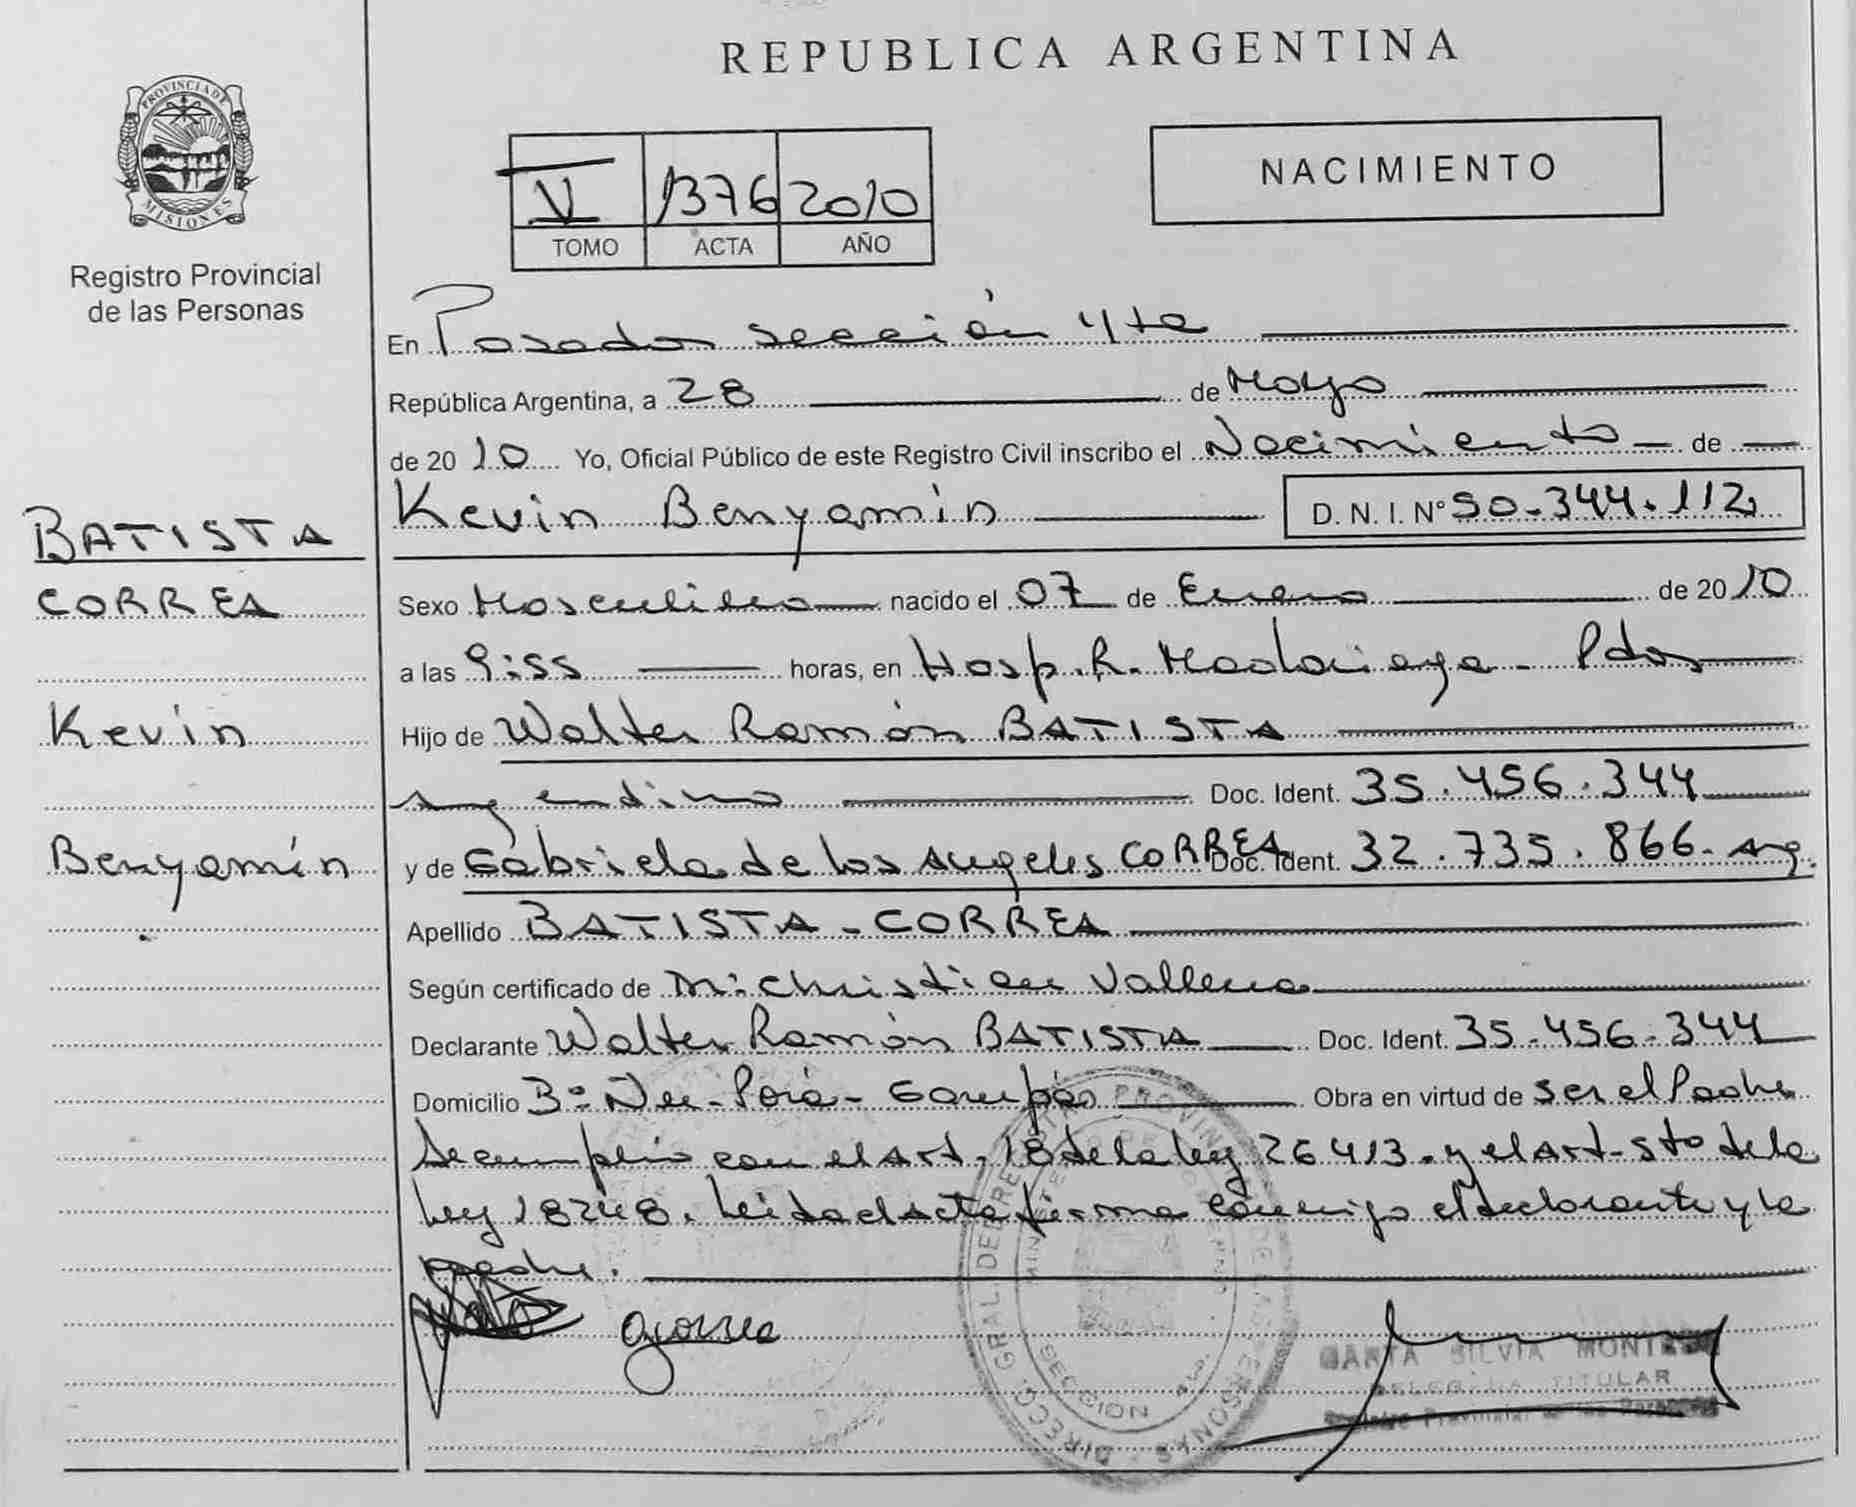 REPUBLICA ARGENTINA
PROVINCIA DE
MISIONES
Registro Provincial
de las Personas
V 1376 2010
TOMO ACTA AÑO
NACIMIENTO
En Posadas sección 4ta
República Argentina, a 28 de Mayo
de 2010 Yo, Oficial Público de este Registro Civil inscribo el Nacimiento de
Kevin Benyamín D. N. I. Nº 50.344.112
BATISTA
CORREA
Kevin
Benyamín
Sexo Masculino nacido el 07 de Enero de 2010
a las 9:55 horas, en Hosp. R. Madariaga - Pdas
Hijo de Walter Ramón BATISTA
argentino Doc. Ident. 35.456.344
y de Gabriela de los Angeles CORREA Doc. Ident. 32.735.866 - arg.
Apellido BATISTA - CORREA
Según certificado de M: Christian Vallena
Declarante Walter Ramón BATISTA Doc. Ident. 35.456.344
Domicilio Bº Ñu - Porá - Garupá Obra en virtud de ser el Padre
Se cumplió con el art. 18 de la ley 26413. y el art. 5to de la
ley 18248. Leida el acta firma conmigo el declarante y la
madre.
SILVIA
TITULAR
SECCION